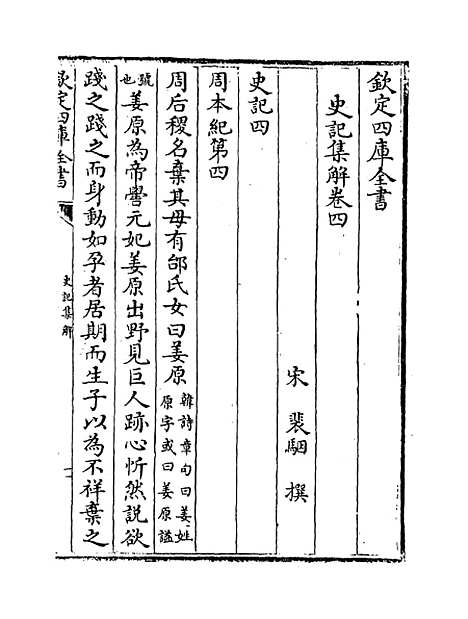 欽定四庫全書
史記集解卷四
宋 裴駰 撰
史記四
周本紀第四
周后稷名棄其母有邰氏女曰姜原韓詩章句曰姜姓
原字或曰姜原諡
號
也姜原為帝嚳元妃姜原出野見巨人跡心忻然說欲
踐之踐之而身動如孕者居期而生子以為不祥棄之
欽定四庫全書
史記集解
一